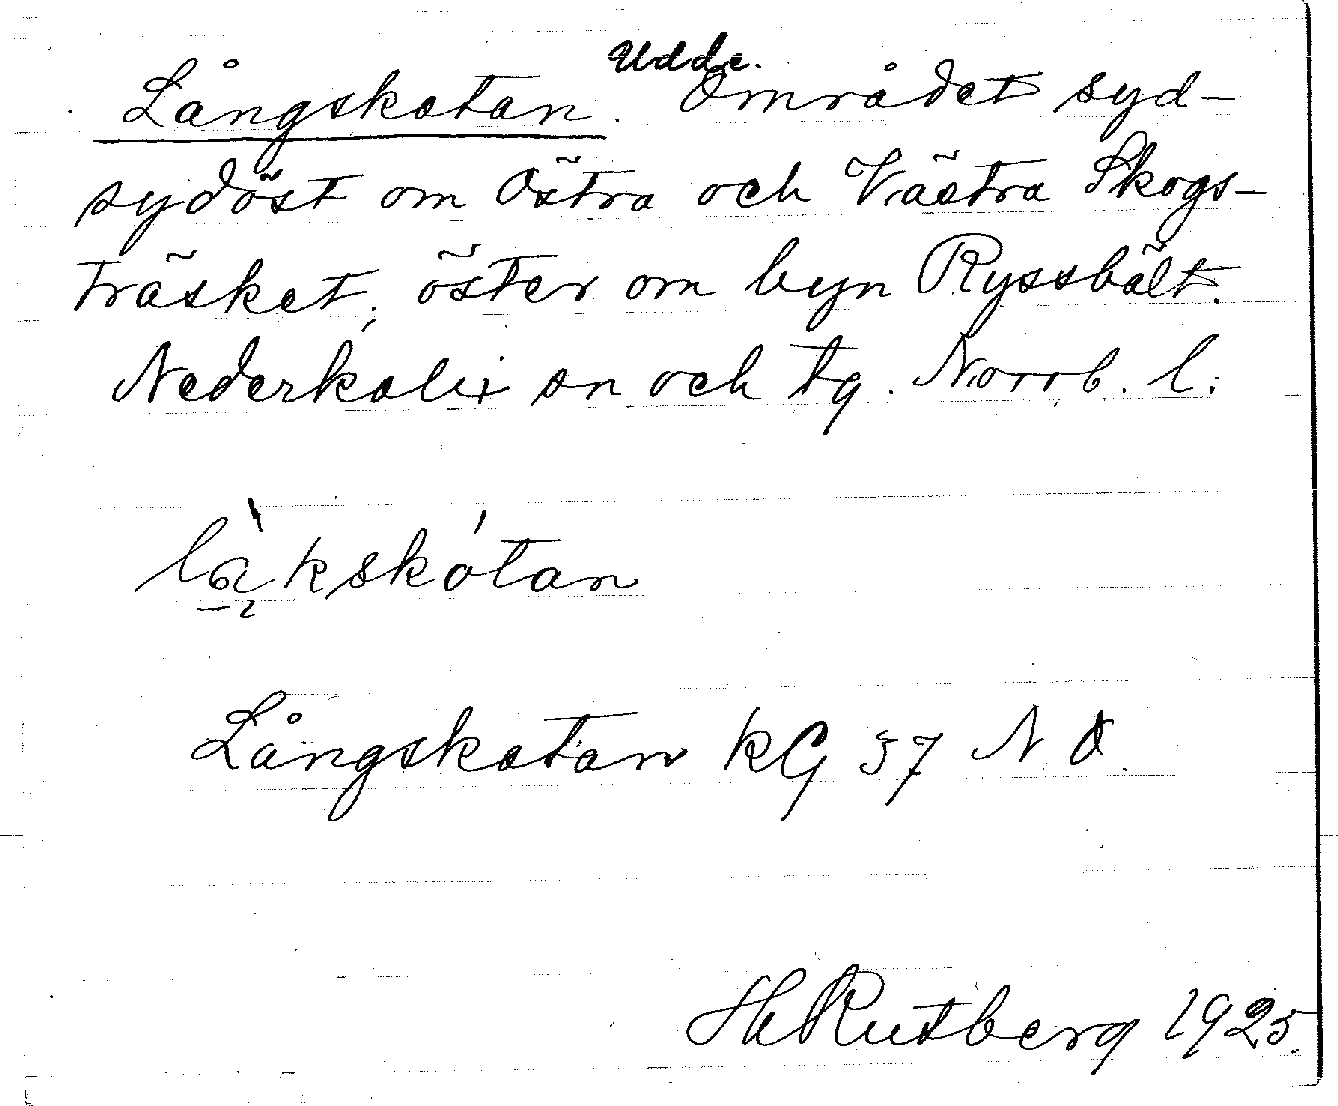 Udde.
Långskatan. Området syd-
sydöst om Östra och Västra Skogs-
träsket, öster om byn Ryssbält.
Nederkalix sn och tg. Norrb. l.
Långskatan KG 37 N O.
H Rutberg 1925.